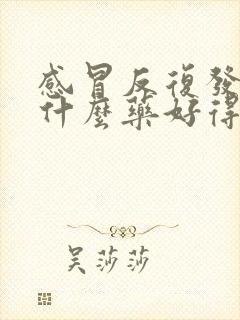 感冒反復發
什麼藥好得
吴莎莎